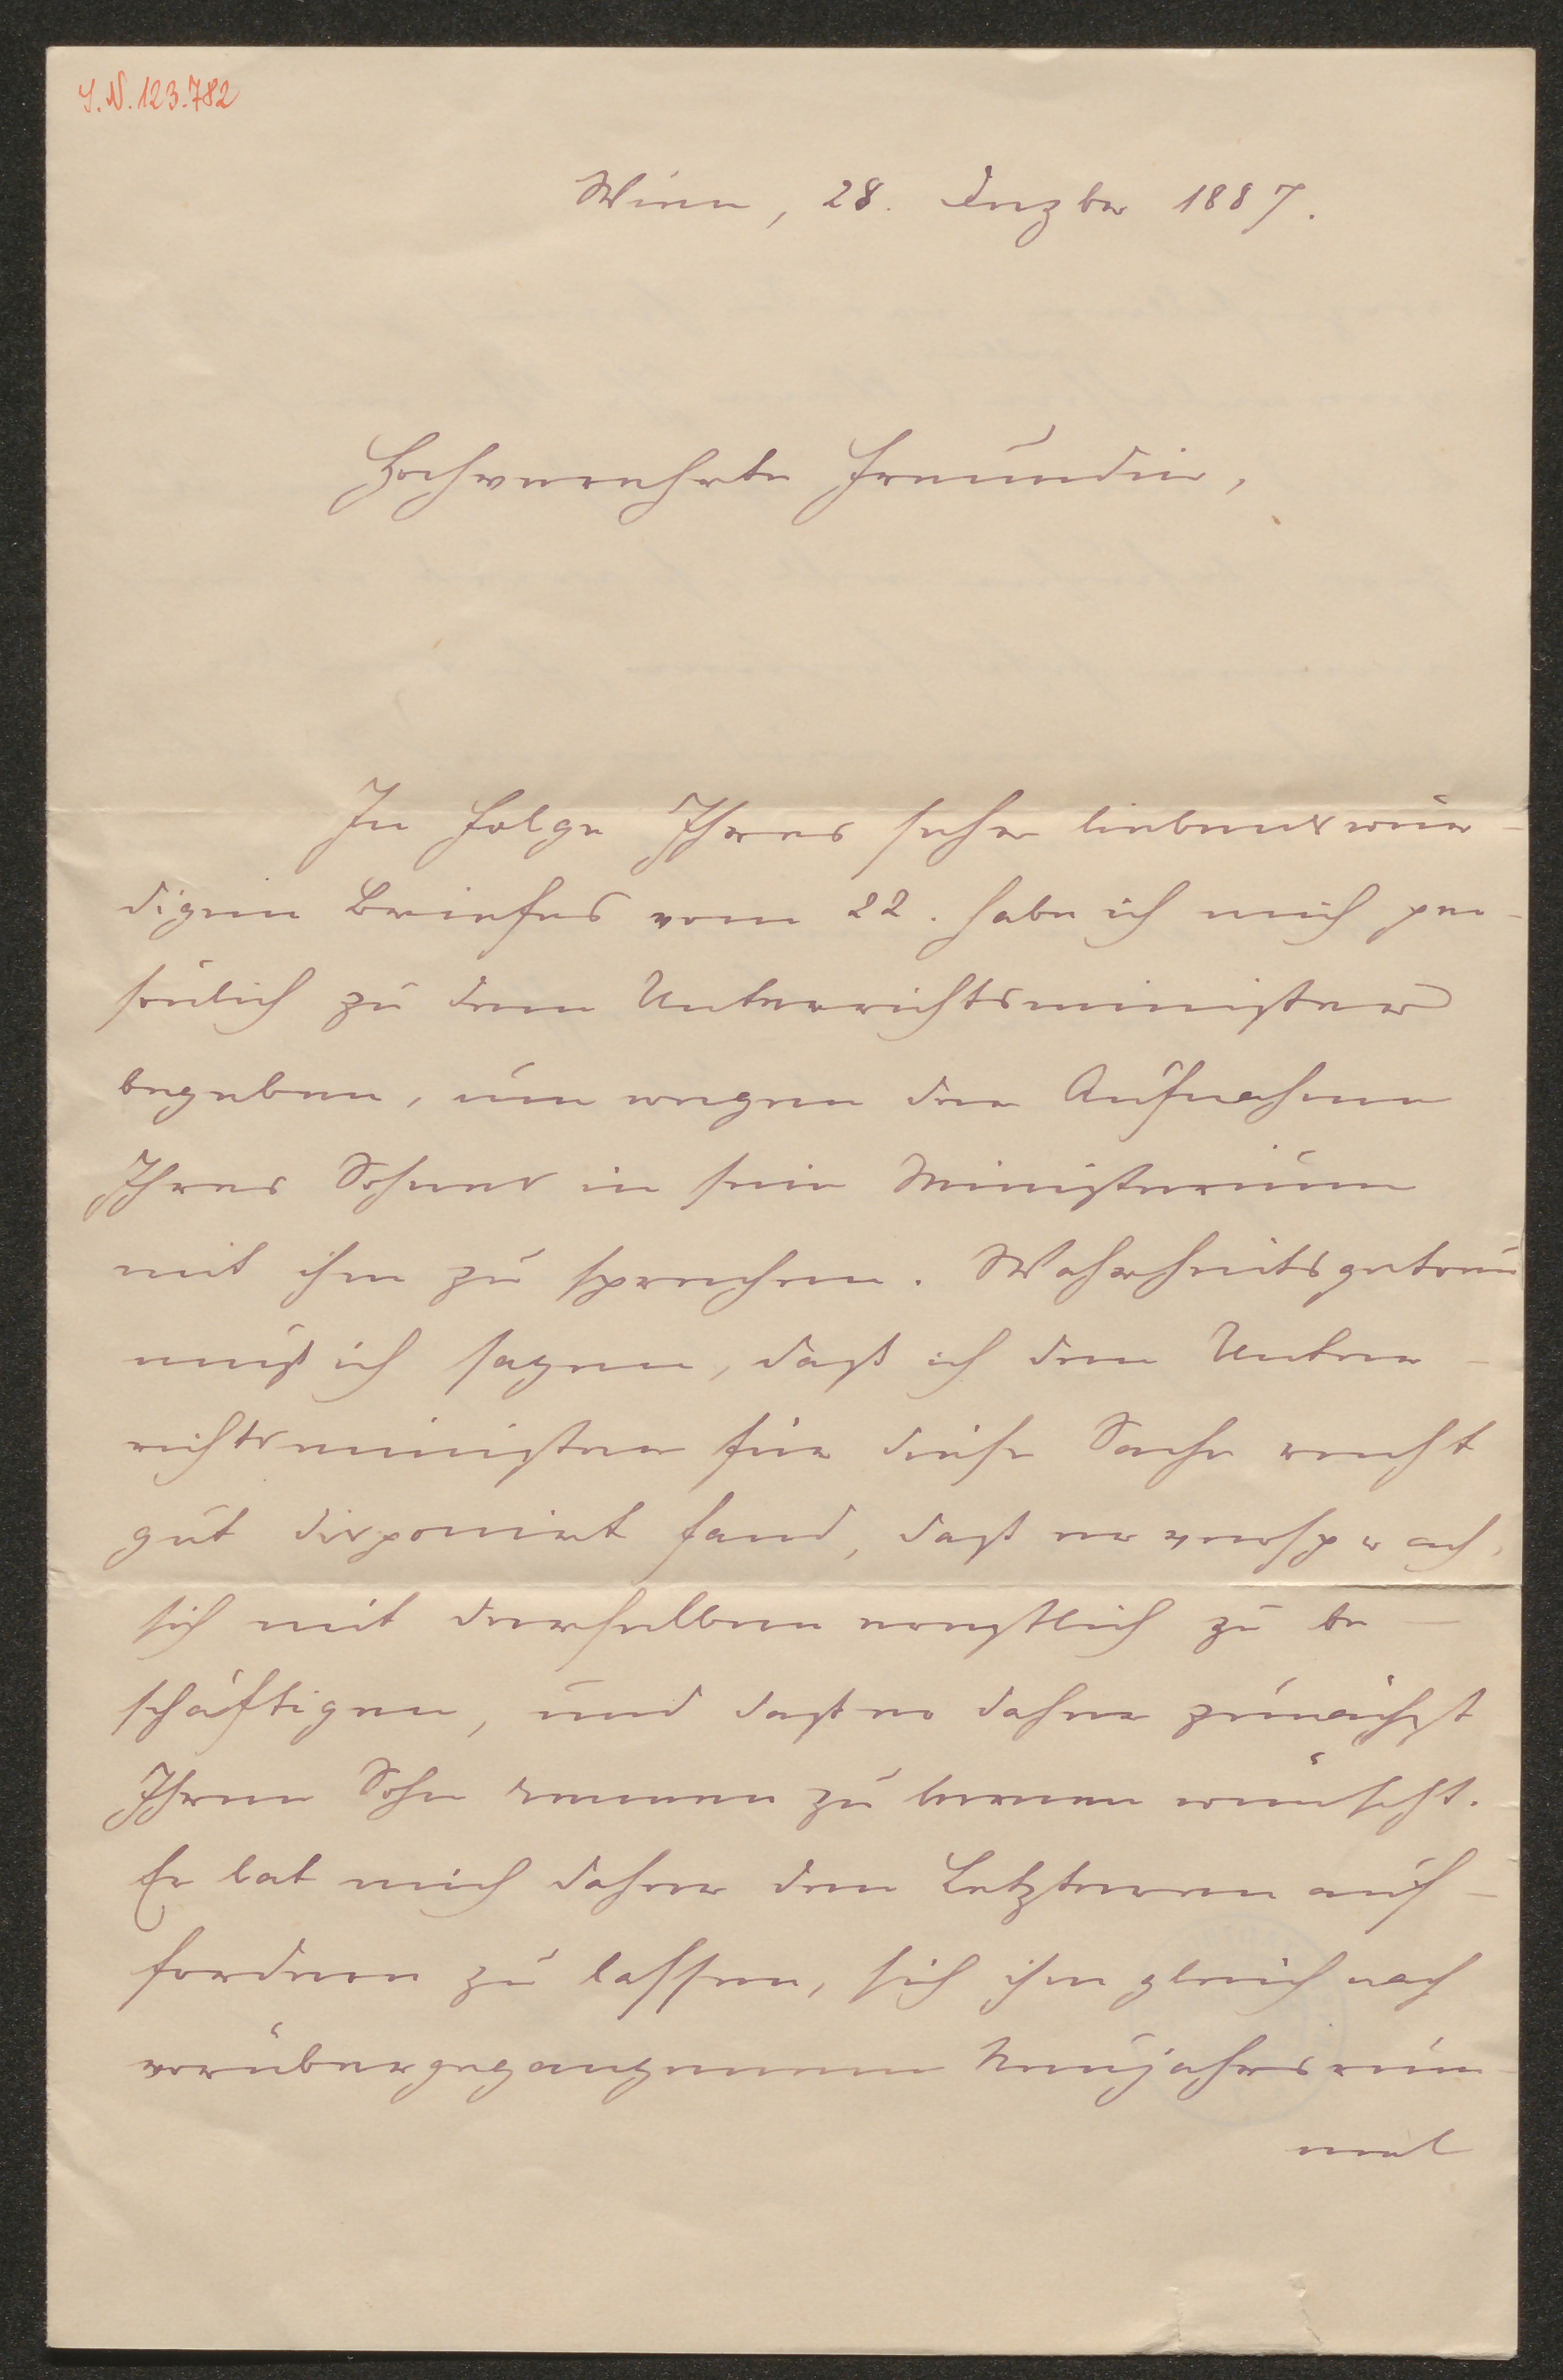 I.N. 123.782
Wien, 28. Dezber 1887.
Hochverehrte Freundin,
In Folge Ihres sehr liebenswür-
digen Briefes vom 22. habe ich mich per-
sönlich zu dem Unterrichtsminister
begeben, um wegen der Aufnahme
Ihres Sohnes in sein Ministerium
mit ihm zu sprechen. Wahrheitsgetreu
muß ich sagen, daß ich den Unter-
richtsminister für diese Sache recht
gut disponirt fand, daß er versprach,
sich mit derselben ernstlich zu be-
schäftigen, und daß er daher zunächst
Ihren Sohn kennen zu lernen wünscht.
Er bat mich daher den Letzteren auf-
fordern zu lassen, sich ihm gleich nach
vorübergegangenem Neujahrsrum-
mel